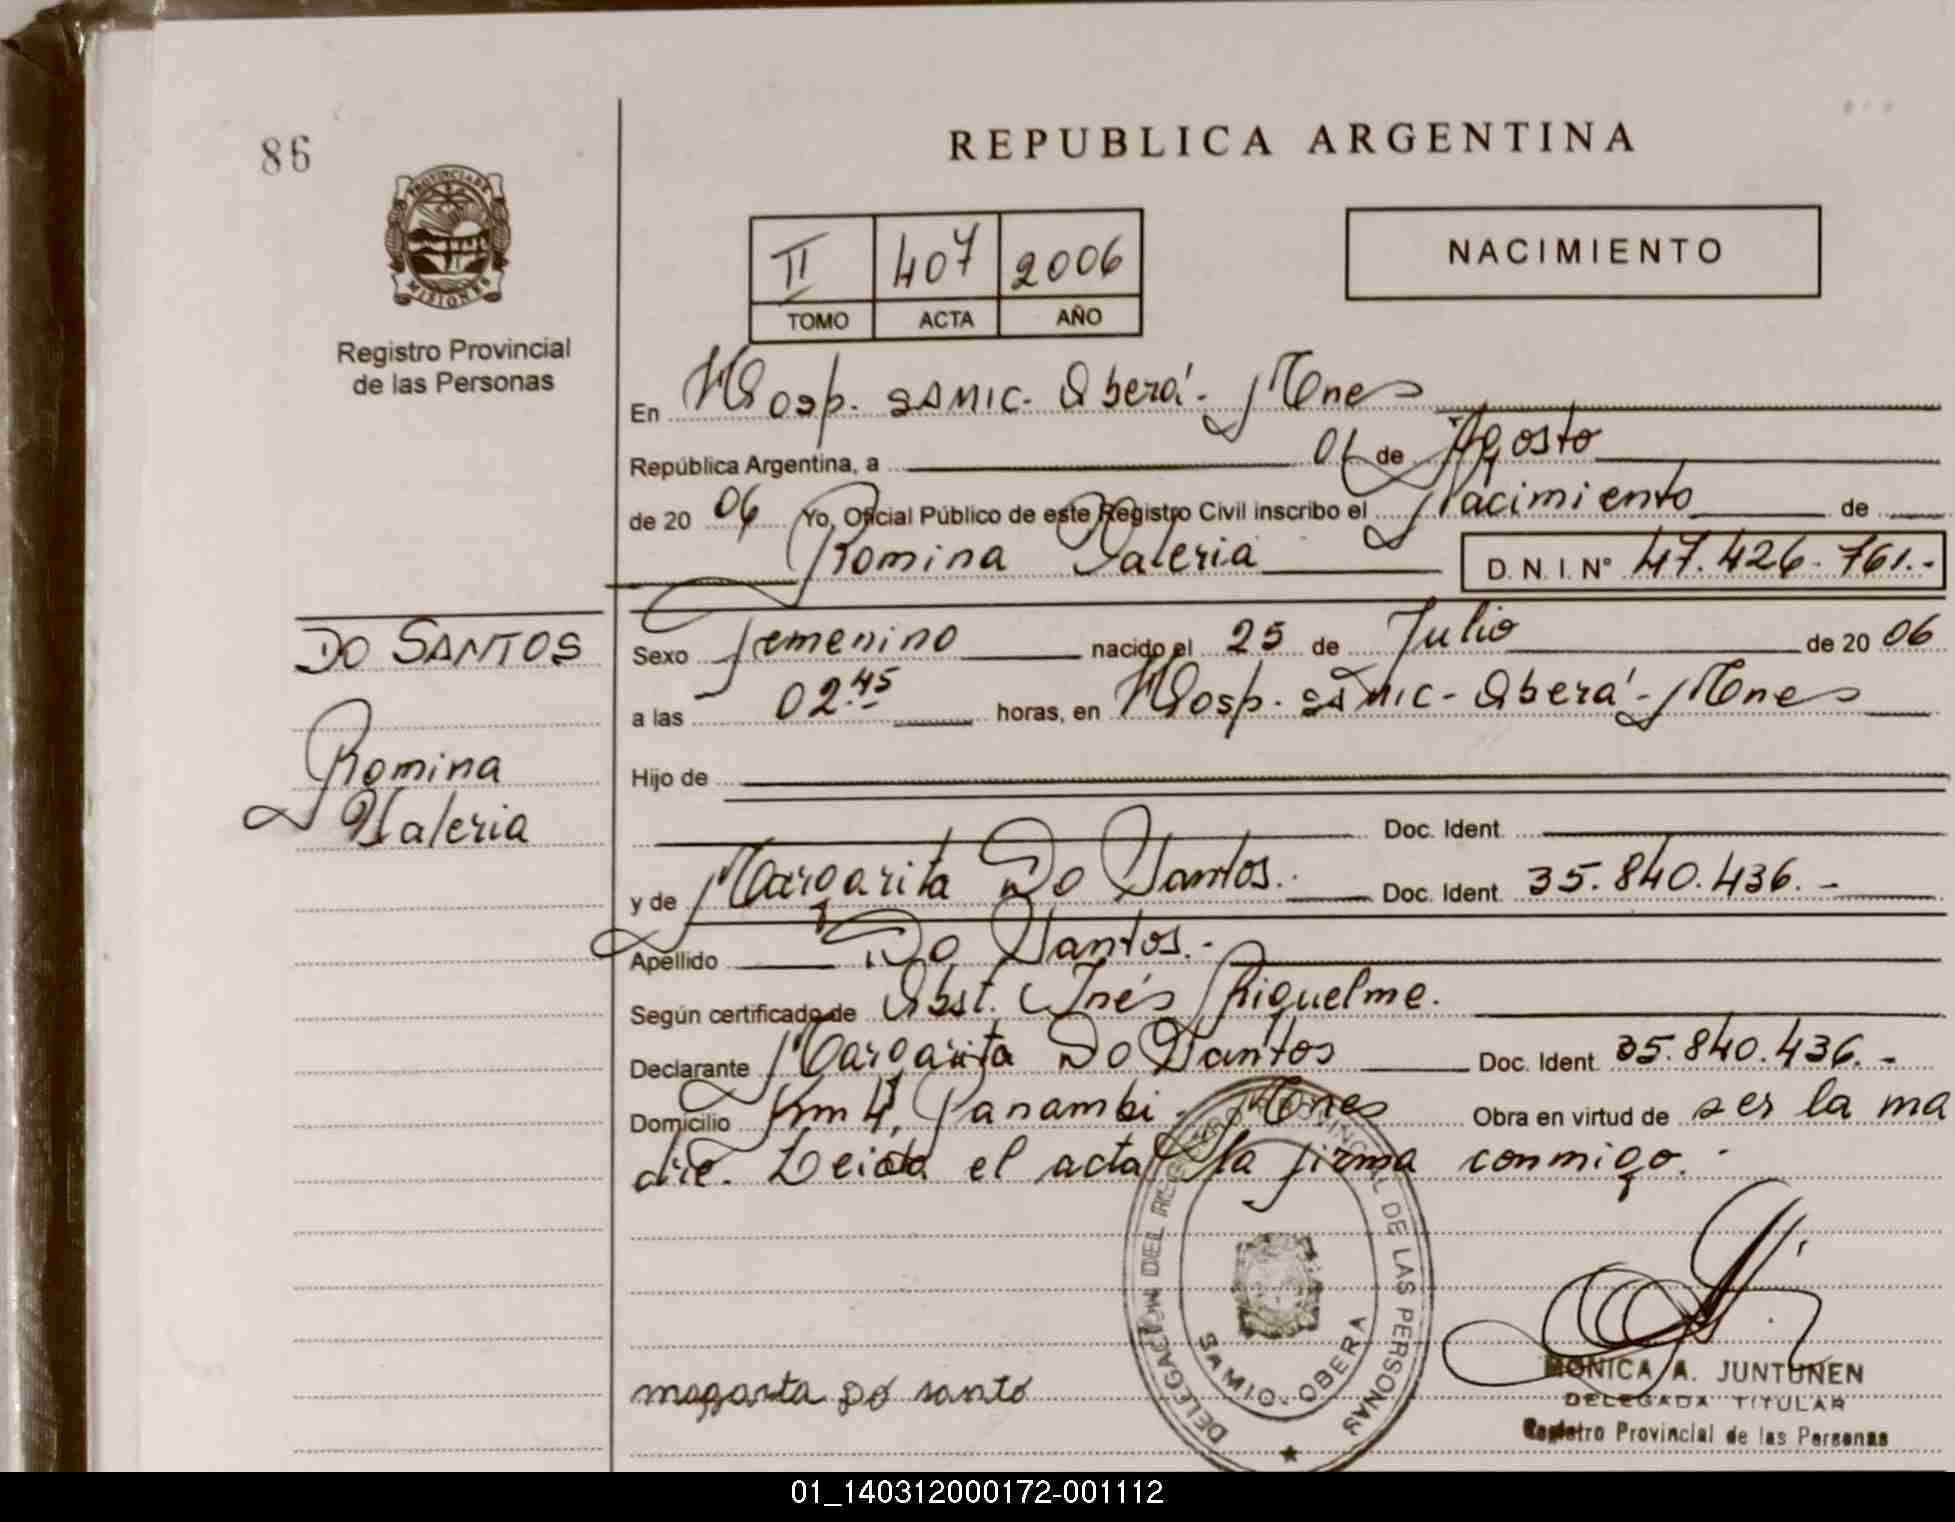 86
REPUBLICA ARGENTINA
PROVINCIA DE
MISIONES
Registro Provincial
de las Personas
II 407 2006
TOMO ACTA AÑO
NACIMIENTO
En Hosp. SAMIC - Oberá - Mnes
República Argentina, a 01 de Agosto
de 20 06 Yo, Oficial Público de este Registro Civil inscribo el Nacimiento de
Romina Valeria D. N. I. Nº 47.426.761.-
DO SANTOS
Romina
Valeria
Sexo femenino nacido el 25 de Julio de 20 06
a las 02.45 horas, en Hosp. SAMIC - Oberá - Mnes
Hijo de
Doc. Ident.
y de Margarita Do Santos.- Doc. Ident. 35.840.436.-
Apellido Do Santos.-
Según certificado de Obst. Inés Riquelme.
Declarante Margarita Do Santos Doc. Ident. 35.840.436.-
Domicilio Km 4, Panambi - Mnes Obra en virtud de ser la ma
dre. Leida el acta la firma conmigo.-
DELEGACION DEL REGISTRO PROVINCIAL DE LAS PERSONAS
SAMIC - OBERA
magarita do santo
MONICA A. JUNTUNEN
DELEGADA TITULAR
Registro Provincial de las Personas
01_140312000172-001112